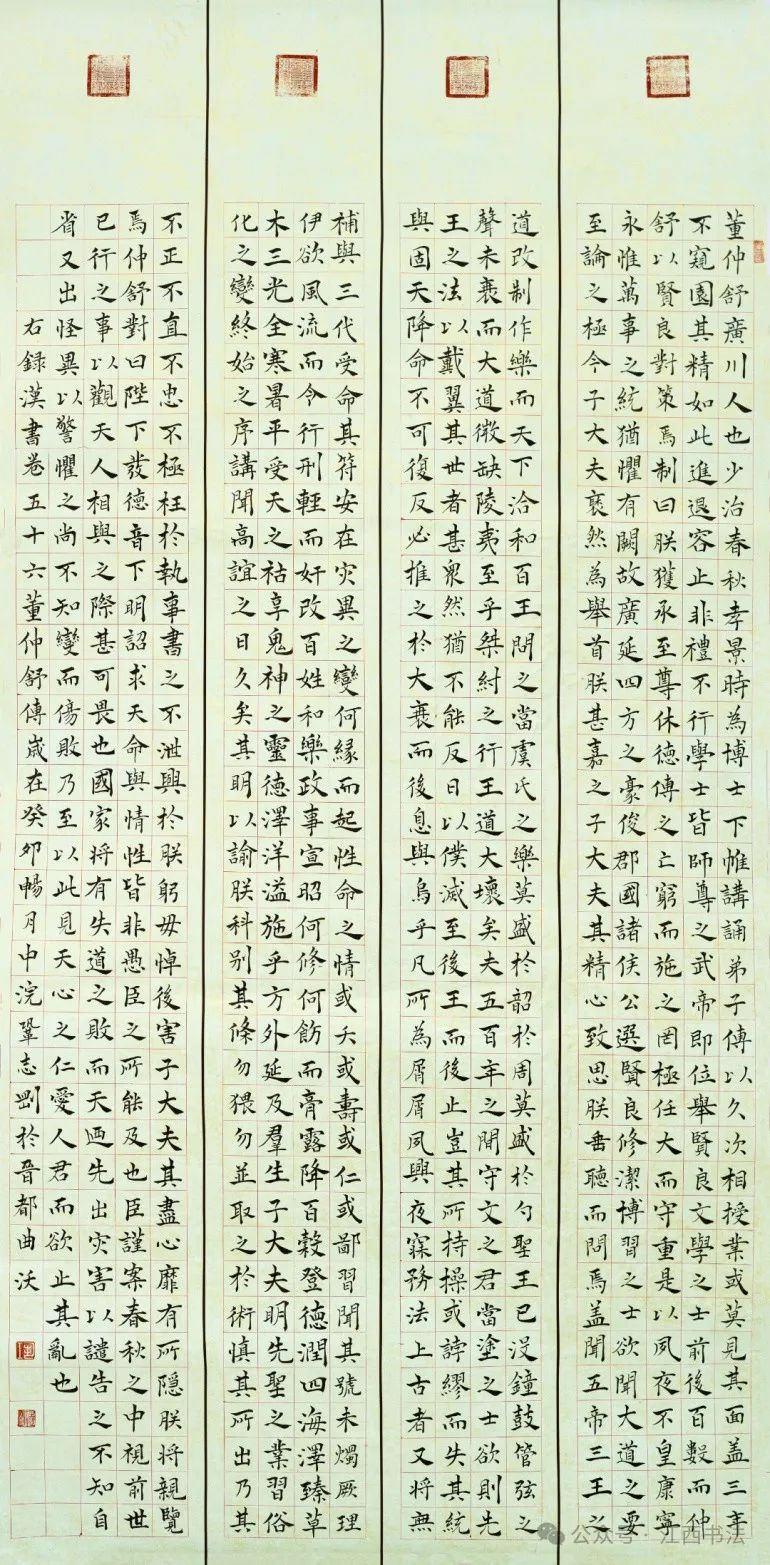 董仲舒廣川人也少治春秋孝景時為博士下帷講誦弟子傳以久次相授業或莫見其面盖三年
不窺園其精如此進退容止非禮不行學士皆師尊之武帝即位舉賢良文學之士前後百數而仲
舒以賢良對策焉制曰朕獲承至尊休德傳之亡窮而施之罔極任大而守重是以夙夜不皇康寧
永惟萬事之統猶懼有闕故廣延四方之豪俊郡國諸侯公選賢良修潔博習之士欲聞大道之要
至論之極今子大夫裒然為舉首朕甚嘉之子大夫其精心致思朕垂聽而問焉盖聞五帝三王之
道改制作樂而天下洽和百王問之當虞氏之樂莫盛於韶於周莫盛於勺聖王已没鐘鼓管弦之
聲未衰而大道微缺陵夷至乎桀紂之行王道大壞矣夫五百年之間守文之君當塗之士欲則先
王之法以戴翼其世者甚衆然猶不能反日以僕滅至後王而後止豈其所持操或誖繆而失其統
與固天降命不可復反必推之於大衰而後息與烏乎凡所為屑屑夙興夜寐務法上古者又將無
補與三代受命其符安在灾異之變何緣而起性命之情或夭或壽或仁或鄙習聞其號未燭厥理
伊欲風流而令行刑輕而奸改百姓和樂政事宣昭何修何飭而膏露降百穀登德潤四海澤臻草
木三光全寒暑平受天之祜享鬼神之靈德澤洋溢施乎方外延及羣生子大夫明先聖之業習俗
化之變終始之序講聞高誼之日久矣其明以諭朕科别其條勿猥勿並取之於術慎其所出乃其
不正不直不忠不極枉於執事書之不泄興於朕躬毋悼後害子大夫其盡心靡有所隐朕將親覽
焉仲舒對曰陛下發德音下明詔求天命與情性皆非愚臣之所能及也臣謹案春秋之中視前世
已行之事以觀天人相與之際甚可畏也國家将有失道之敗而天迺先出灾害以譴告之不知自
省又出怪異以警懼之尚不知變而傷敗乃至以此見天心之仁愛人君而欲止其亂也
右録漢書卷五十六董仲舒傳歲在癸卯暢月中浣鞏志剛於晋都曲沃
公众号·江西书法